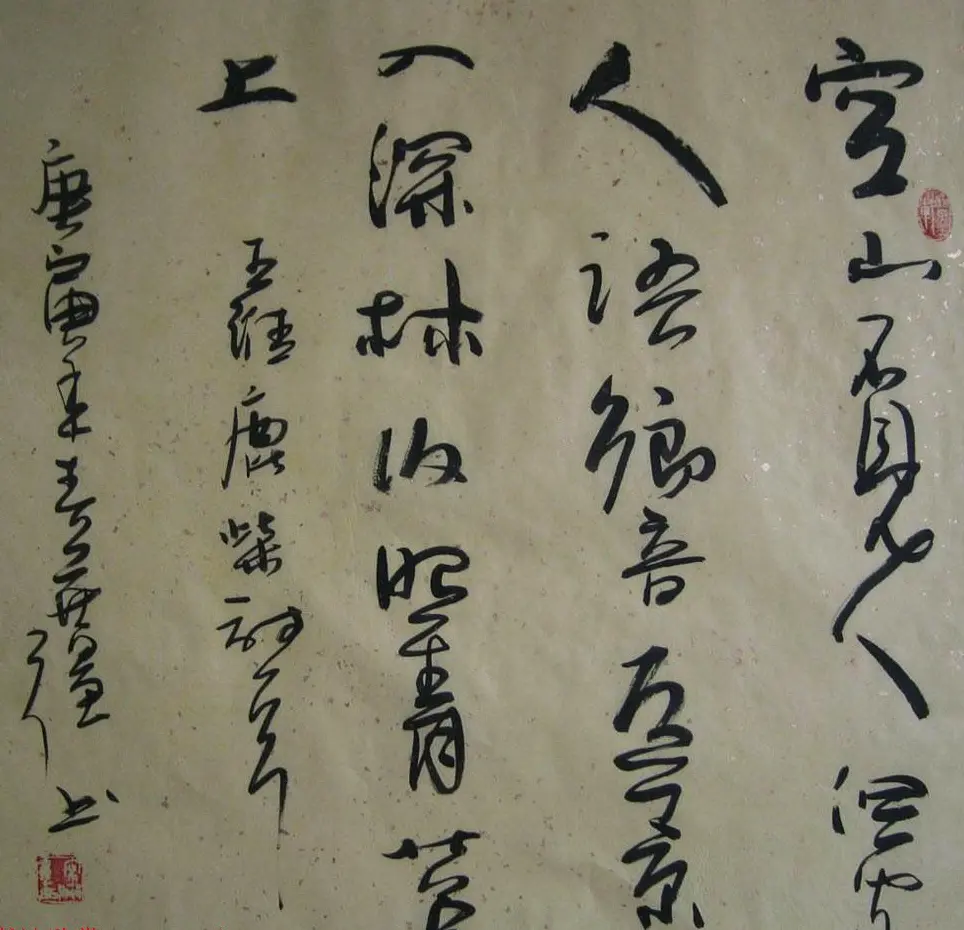 空山不見人但聞
人語響返景
入深林復照青苔
上 王維鹿柴詩一首
庚寅年春無疆书